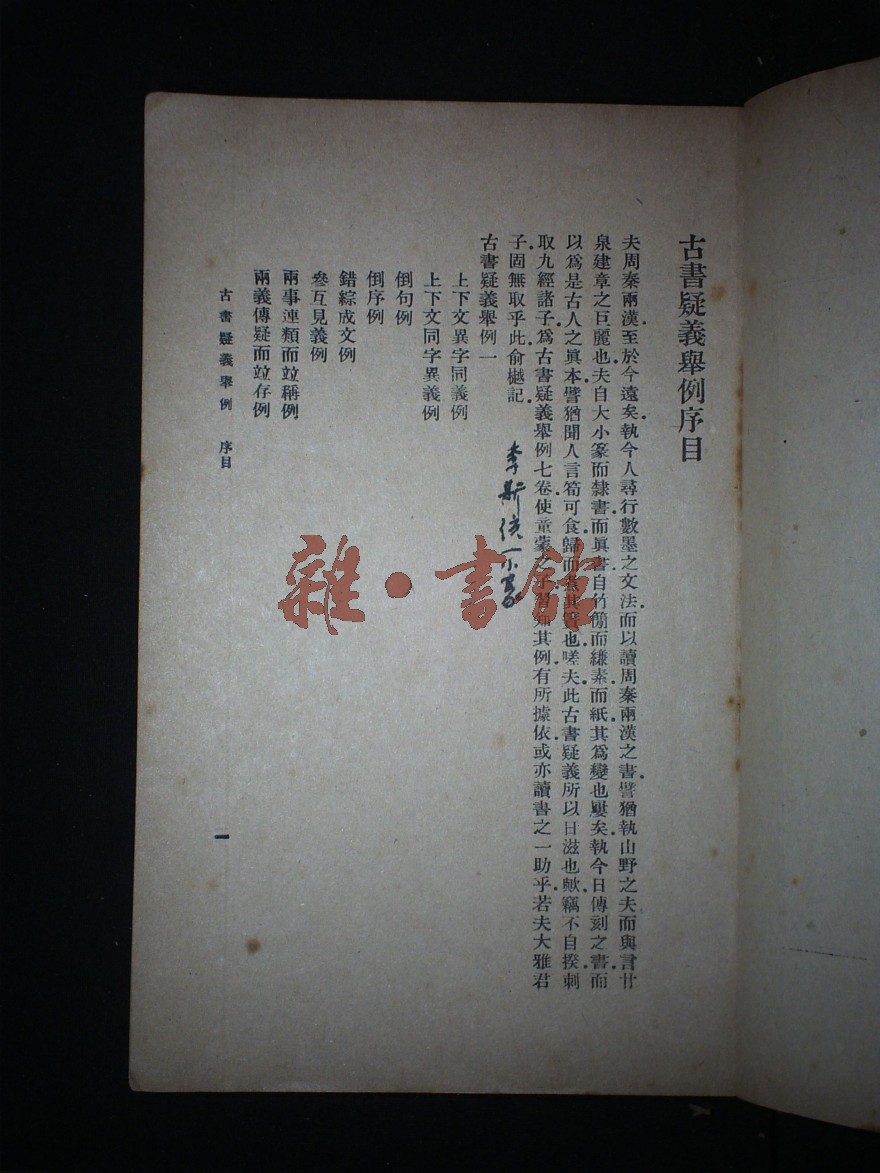 古書疑義舉例序目
夫周秦兩漢至於今遠矣.執今人尋行數墨之文法.而以讀周秦兩漢之書.譬猶執山野之夫而與言甘
泉建章之巨麗也.夫自大小篆而隸書而眞書.自竹簡而縑素而紙.其爲變也屢矣.執今日傳刻之書.而
以爲是古人之眞本.譬猶聞人言筍可食.歸而煮其簀也.嗟夫.此古書疑義所以日滋也歟.竊不自揆.刺
取九經諸子.爲古書疑義舉例七卷.使童蒙之子.習知其例.有所據依.或亦讀書之一助乎.若夫大雅君
子.固無取乎此.俞樾記.
古書疑義舉例一
上下文異字同義例
上下文同字異義例
倒句例
倒序例
錯綜成文例
參互見義例
兩事連類而竝稱例
兩義傳疑而竝存例
古書疑義舉例 序目
一
李斯
雜·書館